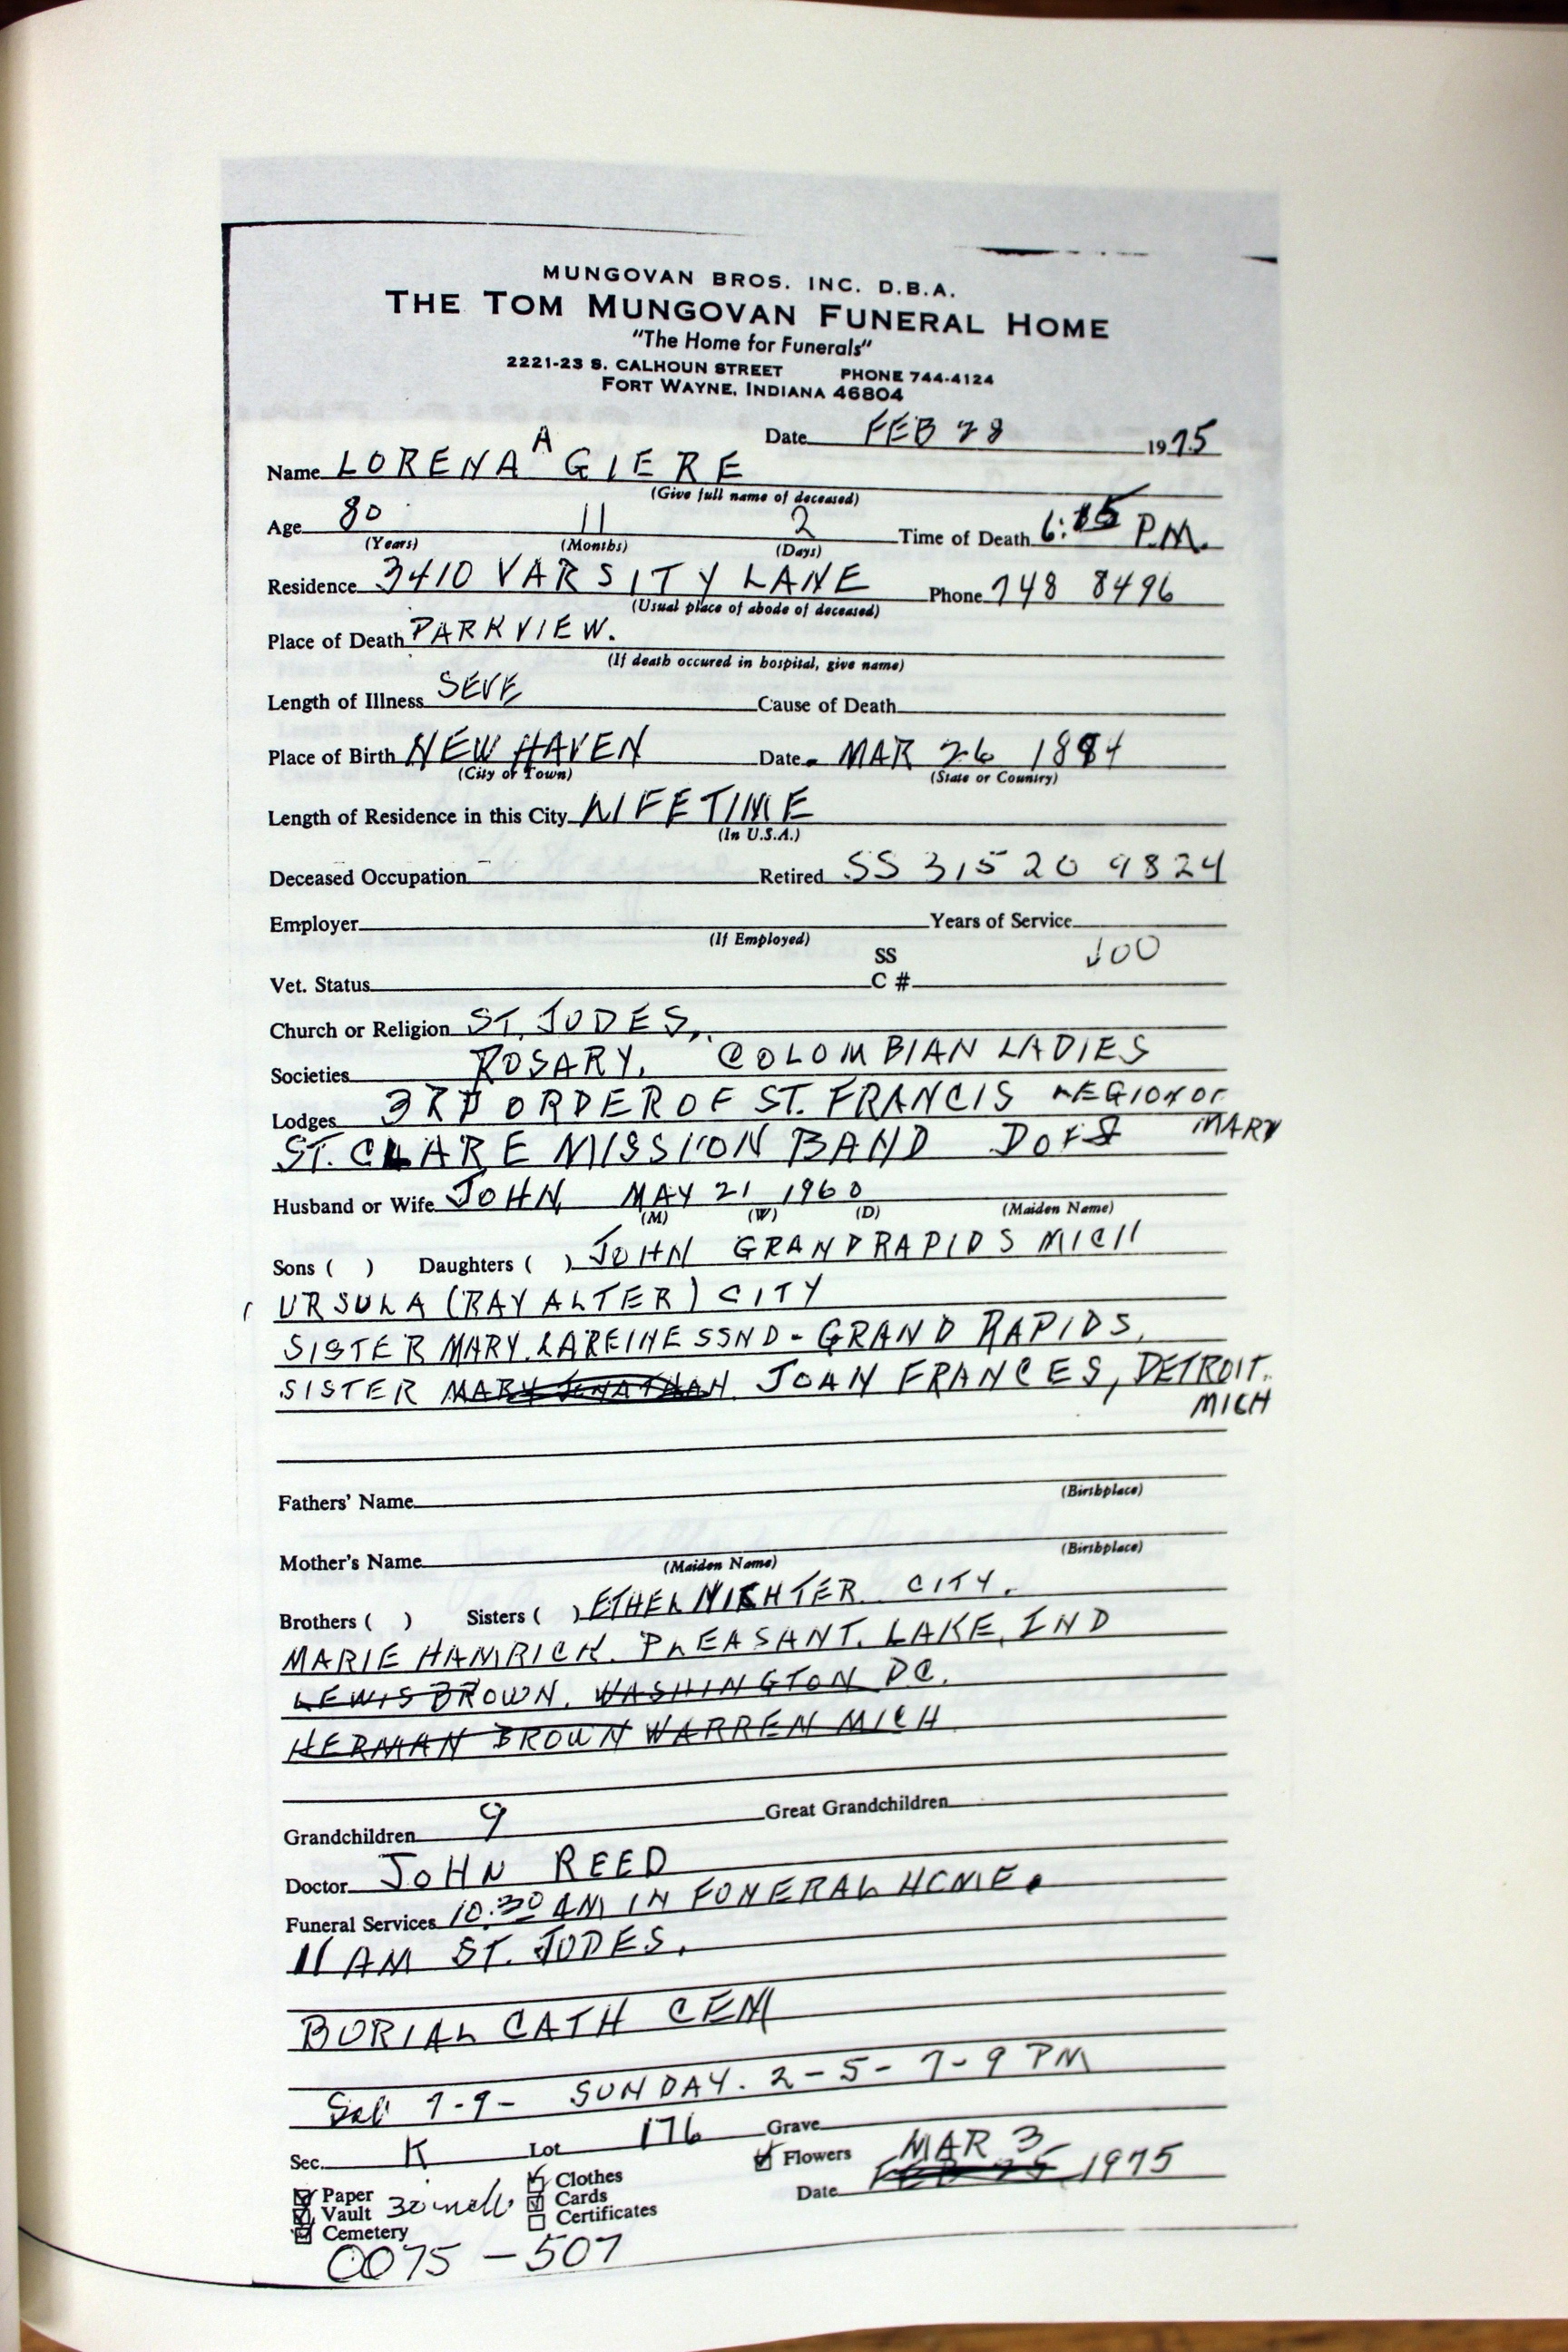 MUNGOVAN BROS. INC. D.B.A.
THE TOM MUNGOVAN FUNERAL HOME
"The Home for Funerals"
2221-23 S. CALHOUN STREET PHONE 744-4124
FORT WAYNE, INDIANA 46804
Date FEB 28 1975
Name LORENA A GIERE
(Give full name of deceased)
Age 80 11 2 Time of Death 6:15 P.M.
(Years) (Months) (Days)
Residence 3410 VARSITY LANE Phone 748 8496
(Usual place of abode of deceased)
Place of Death PARKVIEW.
(If death occured in hospital, give name)
Length of Illness SEVE Cause of Death
Place of Birth NEW HAVEN Date MAR 26 1894
(City or Town) (State or Country)
Length of Residence in this City LIFETIME
(In U.S.A.)
Deceased Occupation Retired SS 315 20 9824
Employer Years of Service
(If Employed)
SS 100
Vet. Status C #
Church or Religion ST. JUDES,
Societies ROSARY, COLOMBIAN LADIES
Lodges 3RD ORDER OF ST. FRANCIS LEGION OF
MARY
ST. CLARE MISSION BAND D OF I
Husband or Wife JOHN MAY 21 1960
(M) (W) (D) (Maiden Name)
Sons ( ) Daughters ( ) JOHN GRAND RAPIDS MICH
URSULA (RAY ALTER) CITY
SISTER MARY LAREINE SSND - GRAND RAPIDS,
SISTER MARY JONATHAN JOAN FRANCES, DETROIT.
MICH
Fathers' Name
(Birthplace)
Mother's Name
(Maiden Name) (Birthplace)
Brothers ( ) Sisters ( ) ETHEL NICHTER CITY.
MARIE HAMRICK. PLEASANT. LAKE, IND
LEWIS BROWN. WASHINGTON DC.
HERMAN BROWN WARREN MICH
Grandchildren 9 Great Grandchildren
Doctor JOHN REED
Funeral Services 10:30 AM IN FUNERAL HOME.
11 AM ST. JUDES.
BURIAL CATH CEM
Sat 7-9- SUNDAY. 2-5-7-9 PM
Sec. K Lot 176 Grave
Flowers MAR 3
Date FEB 1975
Paper Clothes
Vault Cards
Cemetery Certificates
0075-507